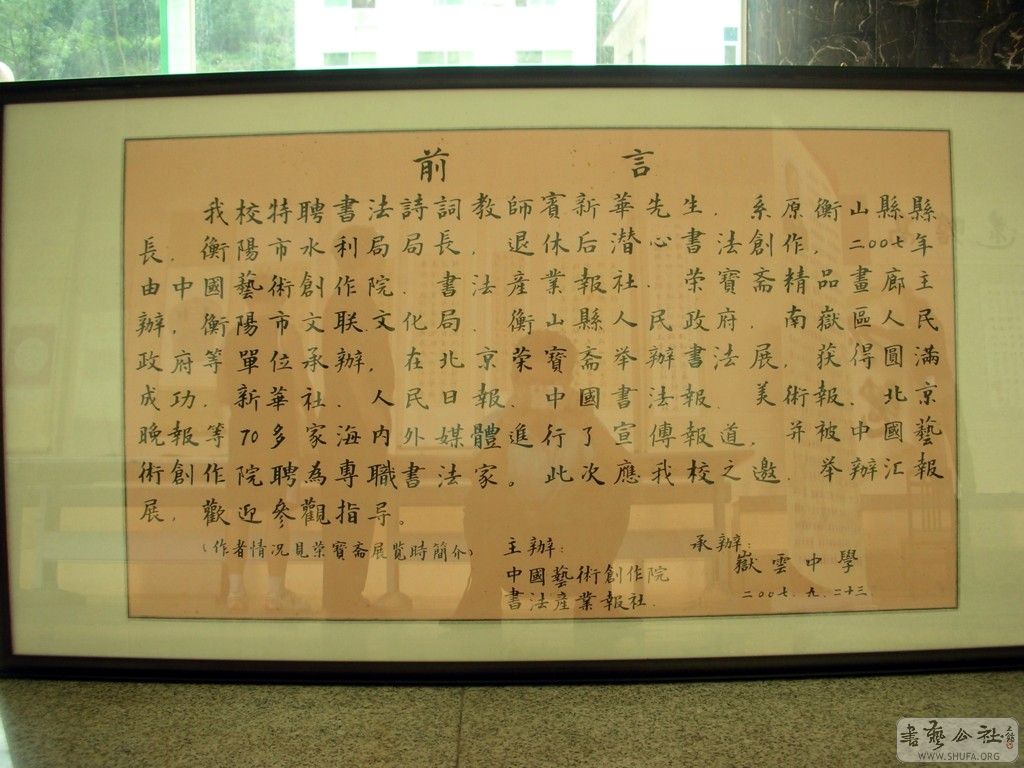 前言
我校特聘書法詩詞教師賓新華先生，系原衡山縣縣
長．衡陽市水利局局長，退休后潛心書法創作，二00七年
由中國藝術創作院．書法産業報社．荣寶斋精品畫廊主
辦，衡陽市文联文化局．衡山縣人民政府．南嶽區人民
政府等單位承辦，在北京荣寶斋举辦書法展，获得圓满
成功．新華社．人民日報．中國書法報．美術報．北京
晚報等70多家海内外媒體進行了宣傳報道，并被中國藝
術創作院聘為專職書法家。此次應我校之邀．举辦汇報
展，歡迎參觀指导。
（作者情况見荣寶斋展览時簡介）
主辦：
中國藝術創作院
書法産業報社．
承辦：
嶽雲中學
二00七．九．二十三
書藝公社
WWW.SHUFA.ORG